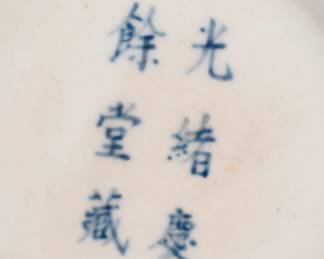 光緒慶
餘堂藏